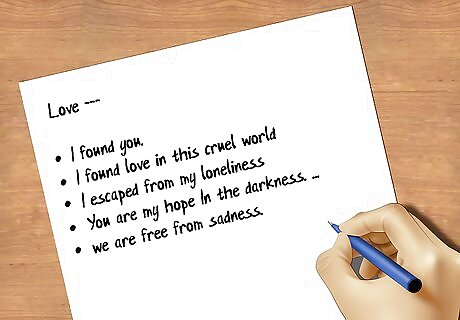 Love ----
• I found you.
• I found love in this cruel world
• I escaped from my loneliness
• You are my hope In the darkness. ...
• we are free from sadness.